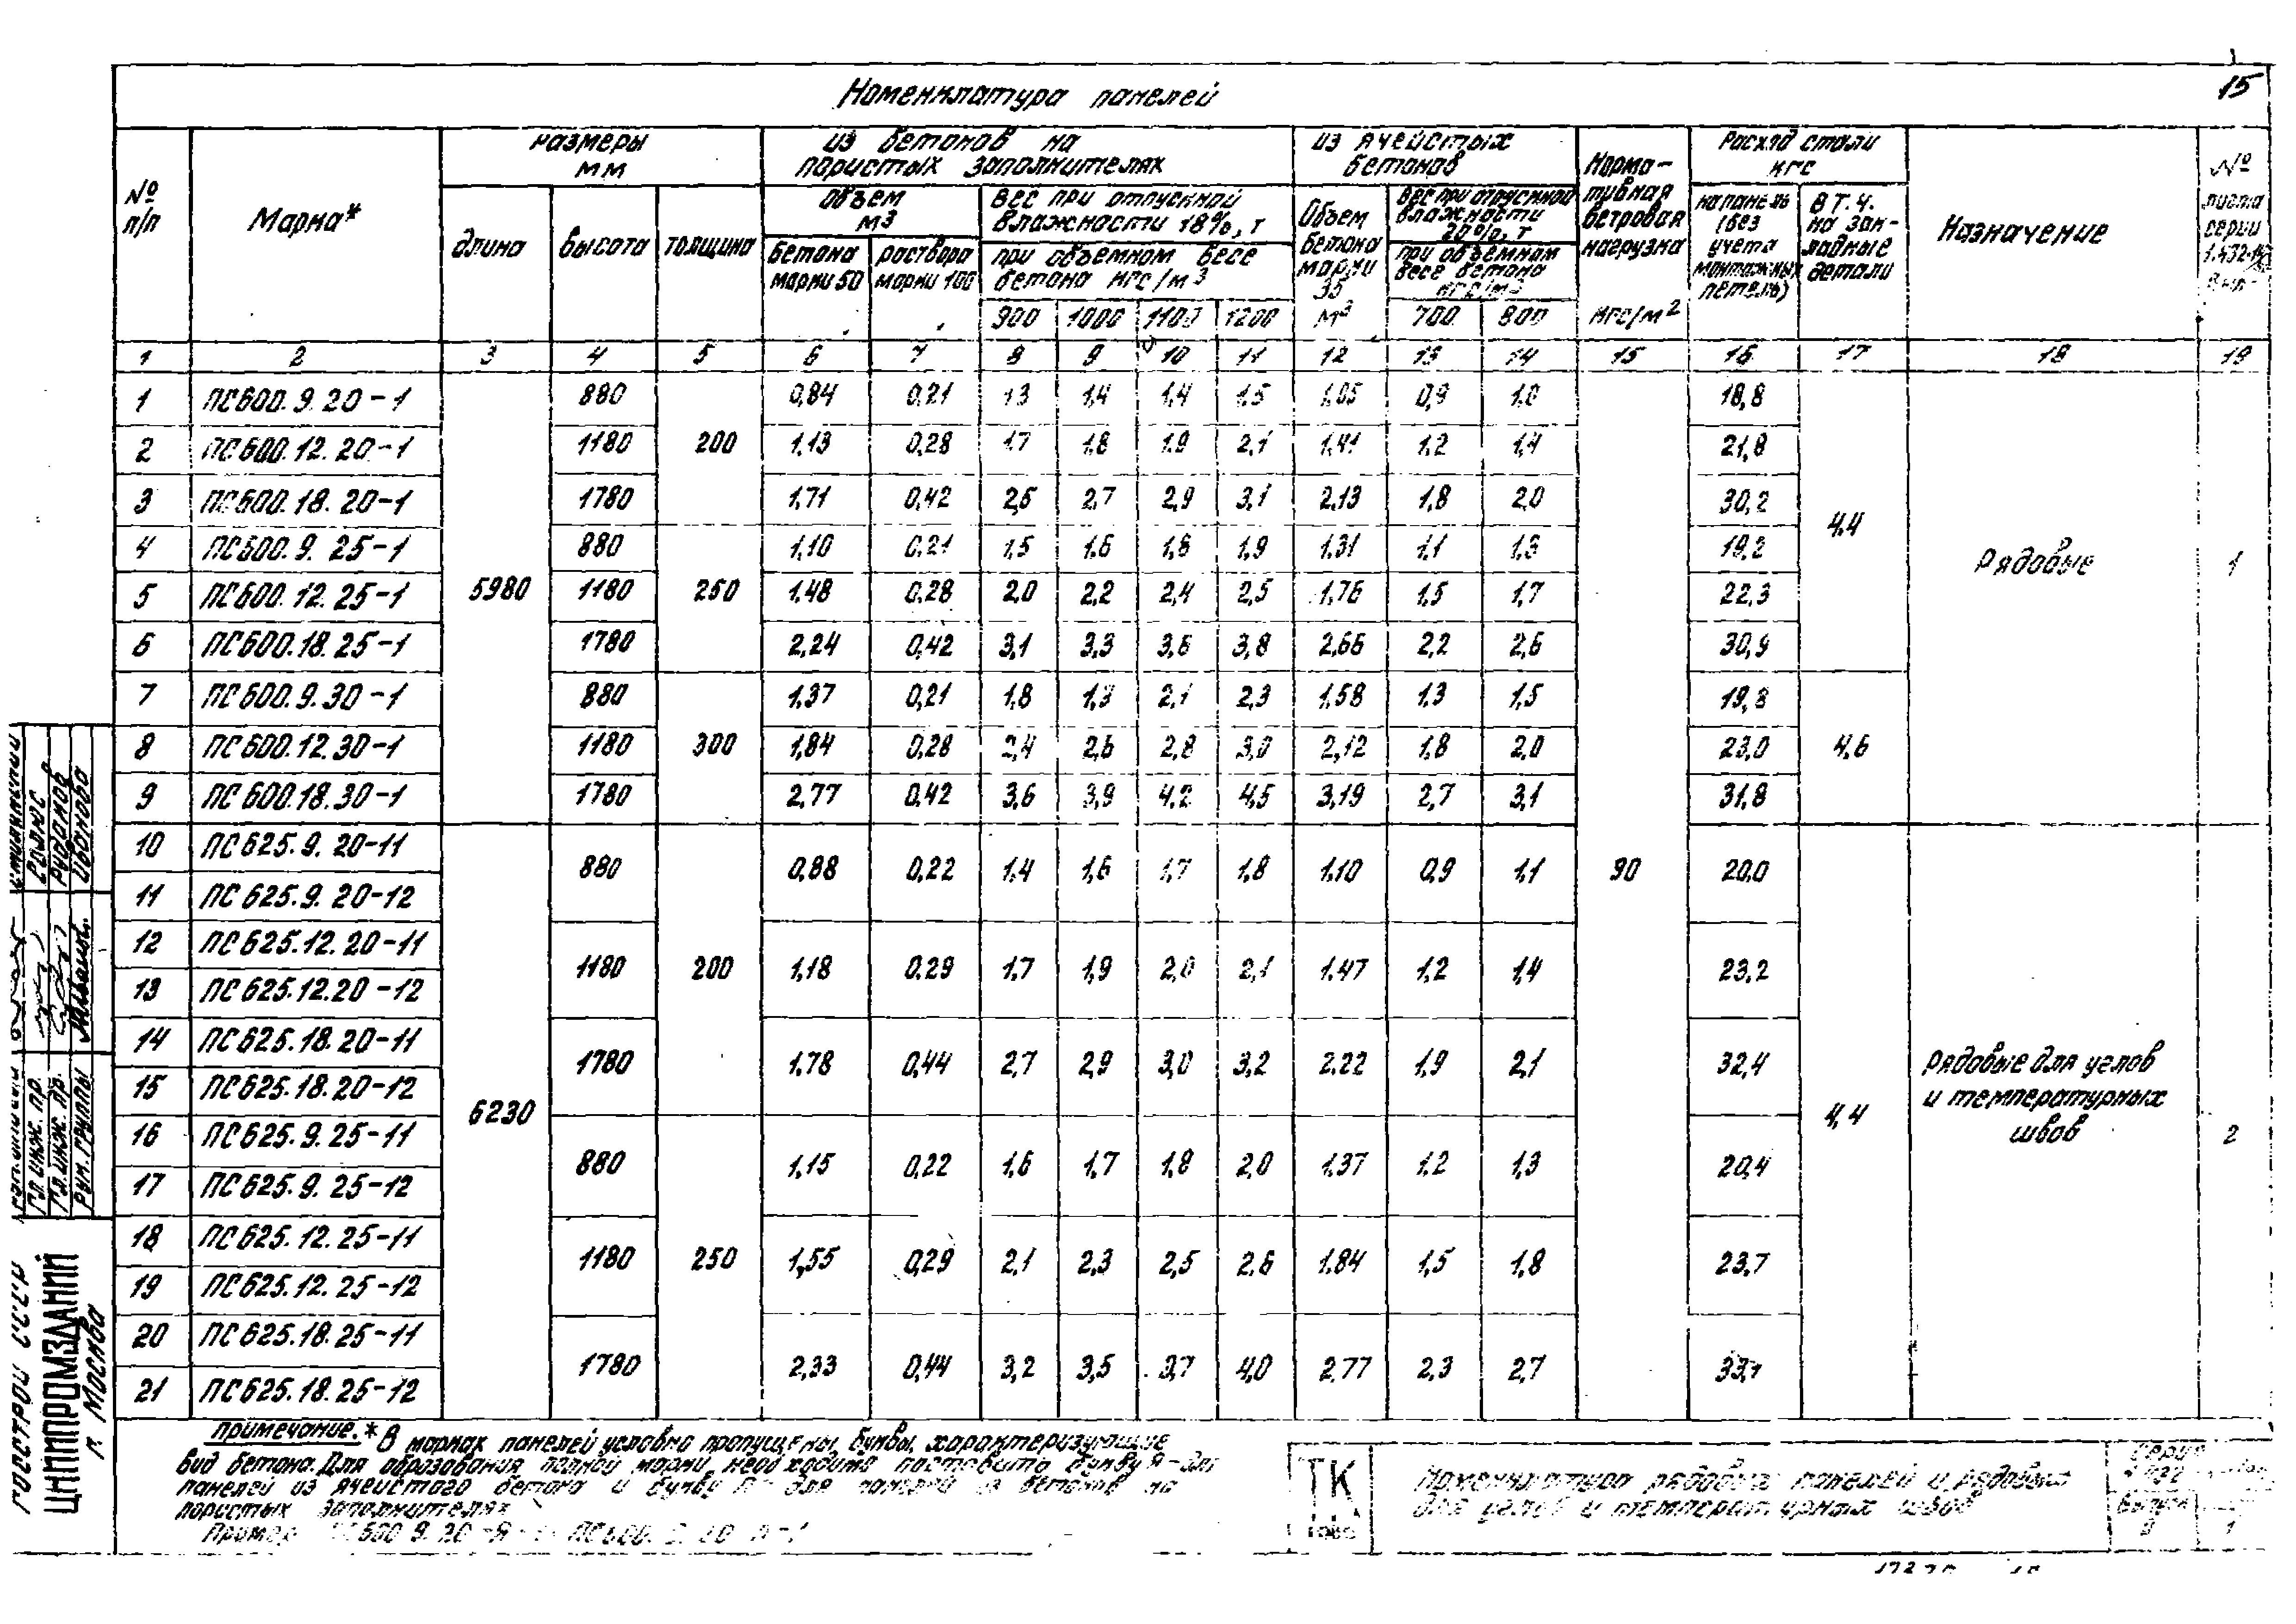 15
Номенклатура панелей
№ п/п
Марка*
размеры мм
из бетонов на пористых заполнителях
из ячеистых бетонов
Норма-тивная ветровая нагрузка кгс/м²
Расход стали кгс
Назначение
№ листа серии
длина
высота
толщина
Объем м3
Вес при отпускной влажности 18%, т
Объем бетона марки 35 м³
Вес при отпускной влажности 20%, т
на панель (без учета монтажных петель)
В т.ч. на зак-ладные детали
бетона марки 50
раствора марки 100
при объемном весе бетона кгс/м3
при объемном весе бетона кгс/м3
900 1000 1100 1200 700 800
1 2 3 4 5 6 7 8 9 10 11 12 13 14 15 16 17 18 19
1 ПС600.9.20-1 880 0,84 0,21 1,3 1,4 1,4 1,5 1,05 0,9 1,0 18,8
2 ПС600.12.20-1 1180 200 1,13 0,28 1,7 1,8 1,9 2,1 1,41 1,2 1,4 21,8
3 ПС600.18.20-1 1780 1,71 0,42 2,5 2,7 2,9 3,1 2,13 1,8 2,0 30,2
4,4
4 ПС600.9.25-1 880 1,10 0,21 1,5 1,6 1,8 1,9 1,31 1,1 1,3 19,2
Рядовые 1
5 ПС600.12.25-1 5980 1180 250 1,48 0,28 2,0 2,2 2,4 2,5 1,76 1,5 1,7 22,3
6 ПС600.18.25-1 1780 2,24 0,42 3,1 3,3 3,6 3,8 2,66 2,2 2,6 30,9
7 ПС600.9.30-1 880 1,37 0,21 1,8 1,9 2,1 2,3 1,58 1,3 1,5 19,8
8 ПС600.12.30-1 1180 300 1,84 0,28 2,4 2,6 2,8 3,0 2,12 1,8 2,0 23,0 4,6
9 ПС600.18.30-1 1780 2,77 0,42 3,6 3,9 4,2 4,5 3,19 2,7 3,1 31,8
10 ПС625.9.20-11
880 0,88 0,22 1,4 1,6 1,7 1,8 1,10 0,9 1,1 90 20,0
11 ПС625.9.20-12
12 ПС625.12.20-11
1180 200 1,18 0,29 1,7 1,9 2,0 2,1 1,47 1,2 1,4 23,2
13 ПС625.12.20-12
14 ПС625.18.20-11
1780 1,78 0,44 2,7 2,9 3,0 3,2 2,22 1,9 2,1 32,4
15 ПС625.18.20-12
6230 4,4
Рядовые для углов
и температурных
швов
2
16 ПС625.9.25-11
880 1,15 0,22 1,6 1,7 1,8 2,0 1,37 1,2 1,3 20,4
17 ПС625.9.25-12
18 ПС625.12.25-11
1180 250 1,55 0,29 2,1 2,3 2,5 2,6 1,84 1,5 1,8 23,7
19 ПС625.12.25-12
20 ПС625.18.25-11
1780 2,33 0,44 3,2 3,5 3,7 4,0 2,77 2,3 2,7 33,1
21 ПС625.18.25-12
Примечание.* В марках панелей условно пропущены буквы, характеризующие
вид бетона. Для образования полной марки необходимо поставить букву Я-для
панелей из ячеистого бетона и букву П - для панелей из бетонов на
пористых заполнителях
Пример
ТК
Номенклатура рядовых панелей и рядовых
для углов и температурных швов
Серия
Выпуск
0
1
ЦНИИПРОМЗДАНИЙ
г. Москва
Госстрой СССР
Гл. инж. пр.
Гл. инж. пр.
Рук. группы